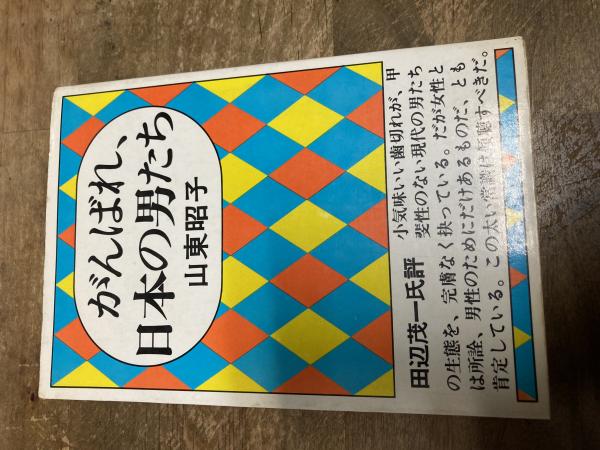 がんばれ、
日本の男たち
山東昭子
田辺茂一氏評
小気味いい歯切れが、甲
斐性のない現代の男たち
の生態を、完膚なく抉っている。だが女性と
は所詮、男性のためにだけあるものだ、とも
肯定している。この太い常識は傾聴すべきだ。